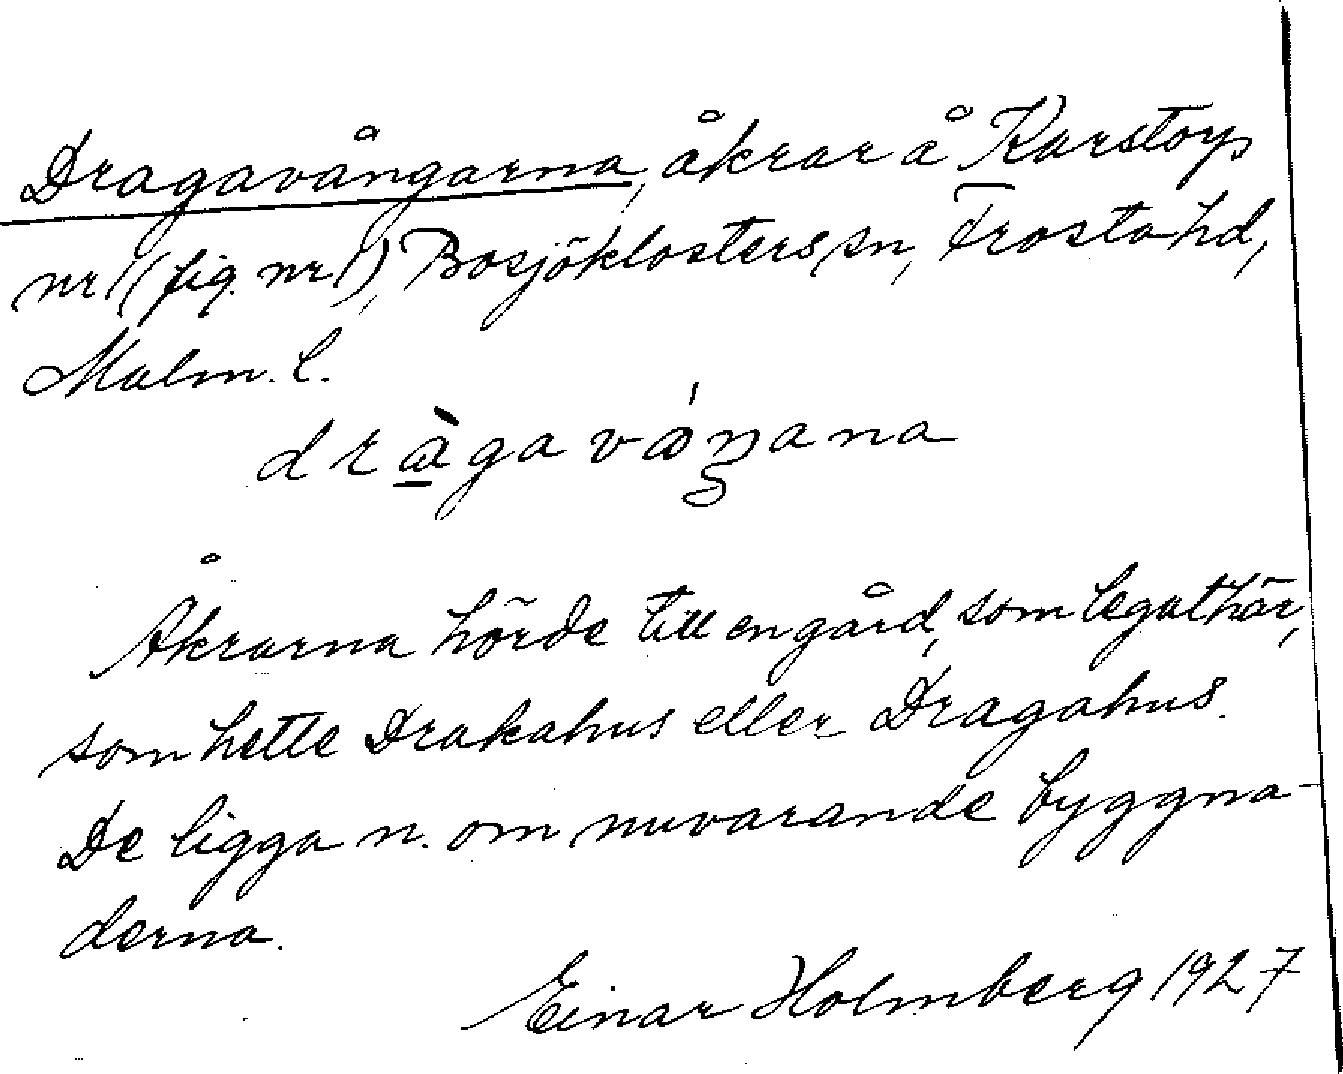 Dragavångarna, åkrar å Karstorp
nr 1 (fig. nr 1), Bosjöklosters sn, Frosta hd,
Malm. l.
dràgavåŋana
Åkrarna hörde till en gård, som legat här,
som hette Drakahus eller Dragahus.
De ligga n. om nuvarande byggna-
derna.
Einar Holmberg 1927